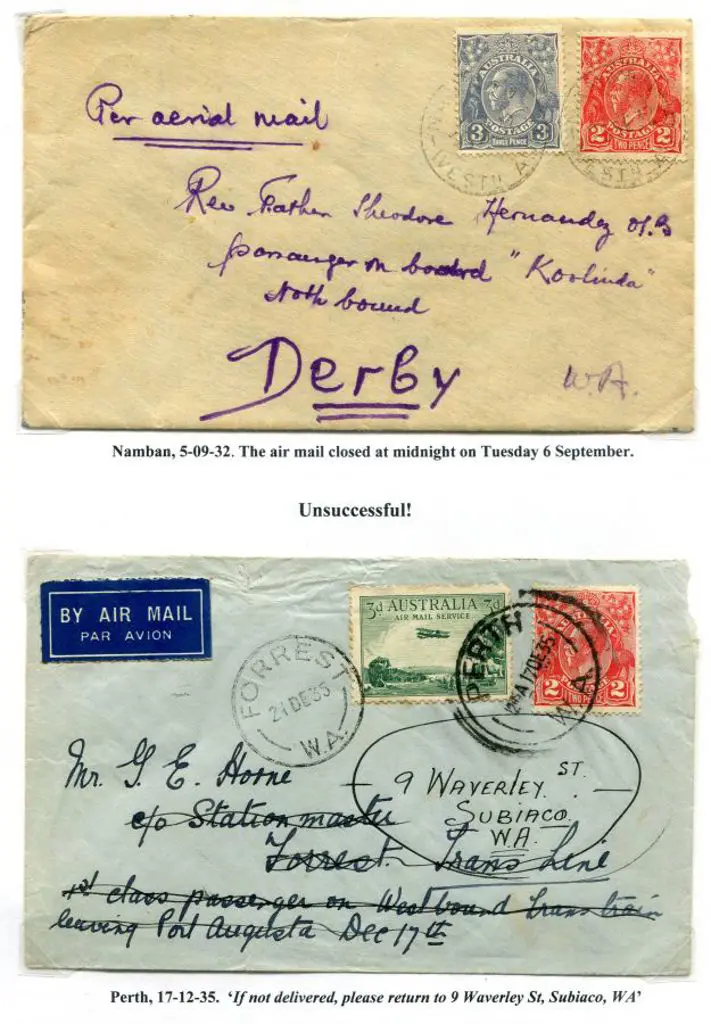 Per aerial mail
AUSTRALIA
POSTAGE
3 3
THREE PENCE
AUSTRALIA
POSTAGE
2 2
TWO PENCE
WESTN A
Rev Father Theodore Hernandez O.S.B
passenger on board "Koolinda"
North bound
Derby
W.A.
Namban, 5-09-32. The air mail closed at midnight on Tuesday 6 September.
Unsuccessful!
BY AIR MAIL
PAR AVION
3d AUSTRALIA 3d
AIR MAIL SERVICE
FORREST
21 DE 35
W.A.
PERTH
17DE35
W.A.
2 2
TWO PENCE
Mr. G. E. Horne
c/o Station master
Forrest. Trans Line
1st class passenger on Westbound trans train
leaving Port Augusta Dec 17th
9 WAVERLEY ST.
SUBIACO
WA.
Perth, 17-12-35. 'If not delivered, please return to 9 Waverley St, Subiaco, WA'